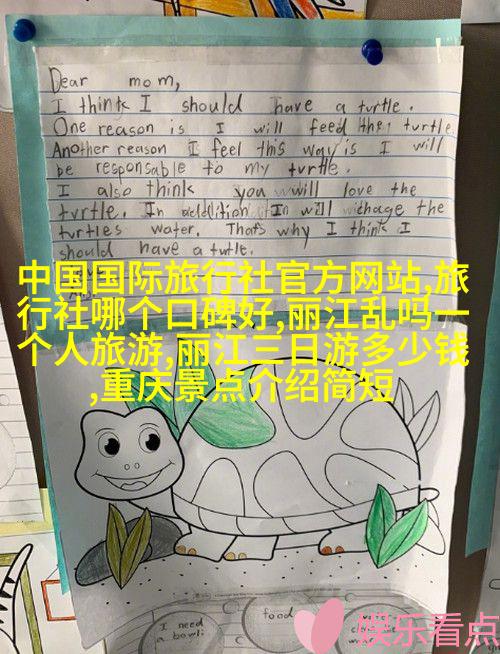 Dear mom,
I think I should have a turtle.
One reason is I will feed the turtle.
Another reason I feel this way is I will
be responsable to my turtle.
I also think you will love the
turtle. In addition I will chage the
turtles water. Thats why I think I
should have a turtle.
中国国际旅行社官方网站,旅
行社哪个口碑好,丽江乱吗一
个人旅游,丽江三日游多少钱
,重庆景点介绍简短
I need
a bowl
food
娱乐看点